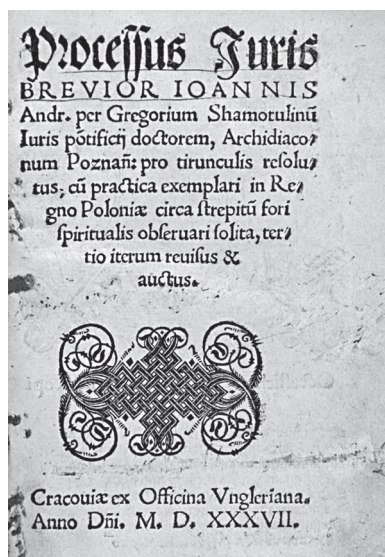 Processus Juris
BREVIOR IOANNIS
Andr. per Gregorium Shamotulinū
Iuris pōtificij doctorem, Archidiaco⸗
num Poznań: pro tirunculis resolu⸗
tus, cū practica exemplari in Re⸗
gno Poloniæ circa strepitū fori
spiritualis obseruari solita, ter⸗
tio iterum reuisus &
auctus.
Cracouiæ ex Officina Vngleriana.
Anno Dñi. M. D. XXXVII.